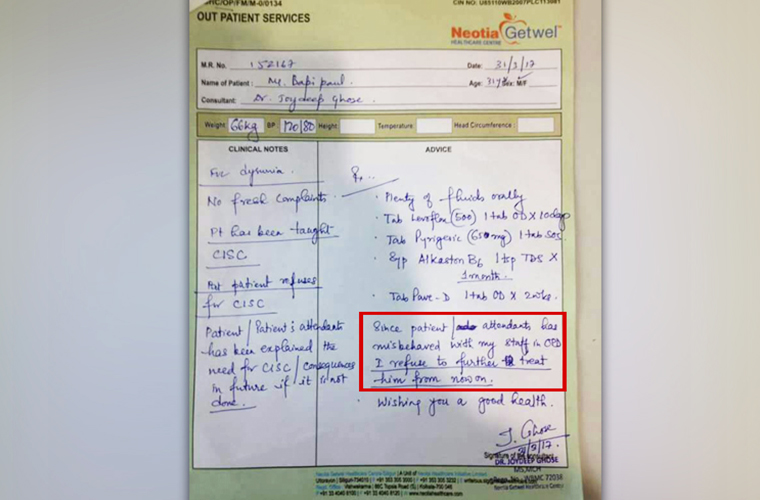 OUT PATIENT SERVICES
Neotia Getwel
HEALTHCARE CENTRE
M.R. No. 152167 Date: 31/3/17
Name of Patient: Mr. Bapi Paul Age: 31y Sex: M/F
Consultant: Dr. Joydeep Ghose.
Weight 66kg BP 120/80 Height: Temperature: Head Circumference:
CLINICAL NOTES
Fuc dysuria
No fresh complaints
Pt has been taught
CISC
But patient refuses
for CISC
Patient/Patient's attendants
has been explained the
need for CISC/consequences
in future if it is not
done.
ADVICE
Plenty of fluids orally
Tab Levoflox (500) 1 tab OD X 10days
Tab Pyrigesic (650mg) 1 tab SOS.
Syp Alkaston B6 1 tsp TDS X
1 month.
Tab Pave-D 1 tab OD X 2wks.
Since patient/ attendants has
misbehaved with my staff in OPD
I refuse to further treat
him from now on.
Wishing you a good health.
J. Ghose
31/3/17.
Signature of the consultant
DR. JOYDEEP GHOSE
MS, MCH